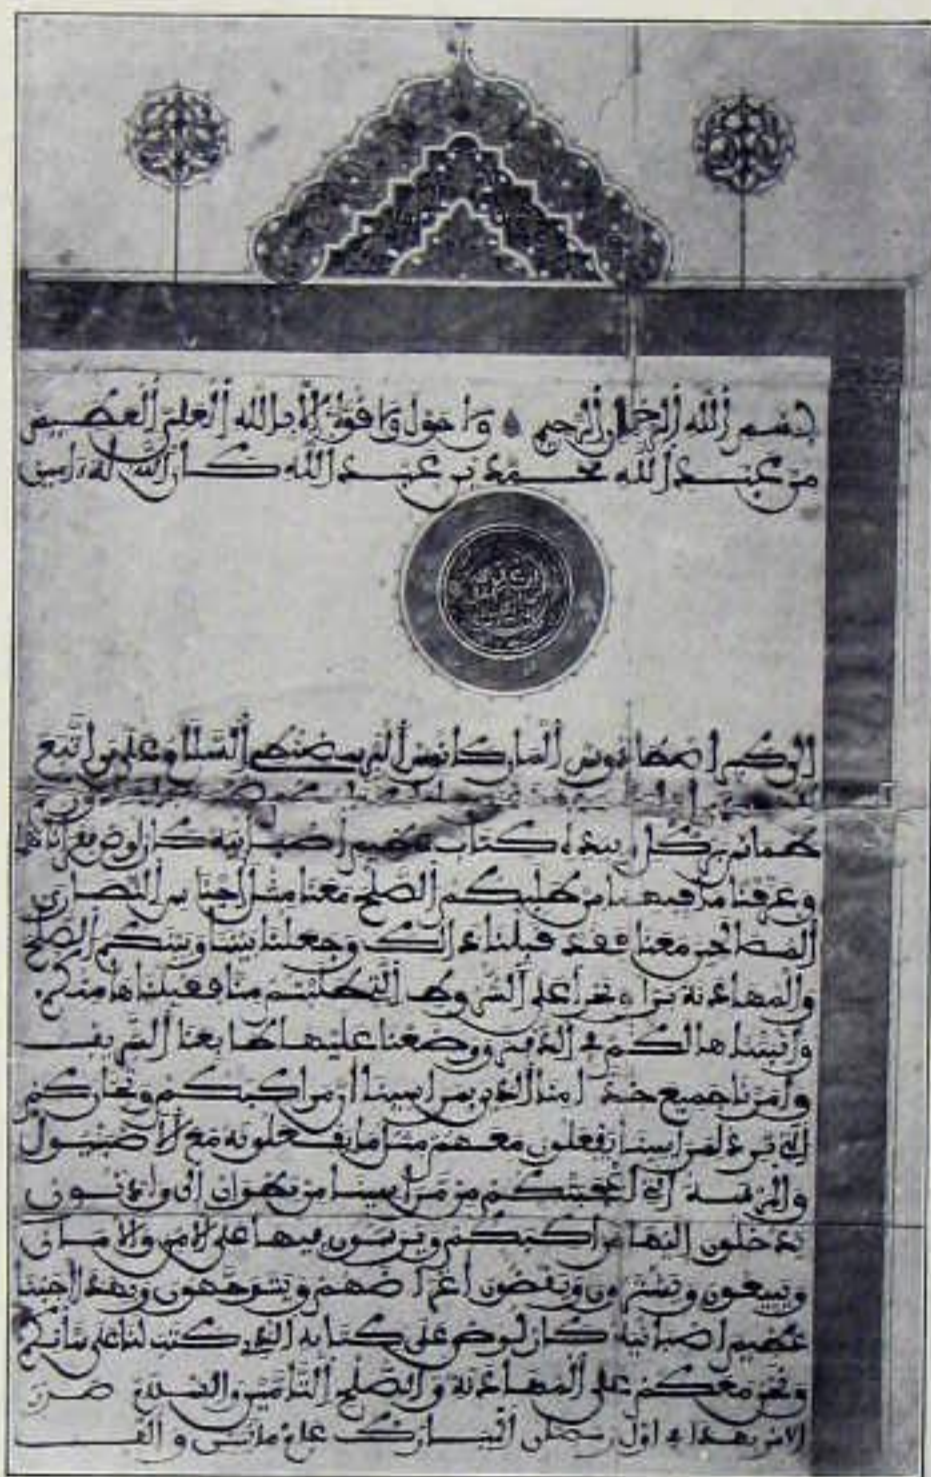 بسم الله الرحمان الرحيم ولا حول ولا قوة إلا بالله العلي العظيم
من عبد الله محمد بن عبد الله كان الله له ءامين
السلام على من اتبع
كتاب عظيم اصبانيه كارلوص
وعرفنا من فيه من طلبكم الصلح معنا مثل اجناس النصارى
المصالحين معنا فقد قبلنا ذلك وجعلنا بيننا وبينكم الصلح
والمهادنة برا وبحرا على الشروط التي طلبتم منا فقبلناها منكم
وأثبتناها لكم في الدفتر ووضعنا عليها طابعنا الشريف
وأمرنا جميع خدامنا الذين بمراسينا أن مراكبكم وتجاركم
التي ترد لمراسينا يفعلون معهم مثل ما يفعلونه مع الاصبنيول
والمرسة التي أعجبتكم من مراسينا من تطوان الى واد نون
تدخلون اليها مراكبكم ويرسون فيها على الامن والامان
ويبيعون ويشترون ويقضون أغراضهم ويتوجهون وبهذا اجبنا
عظيم اصبانية كارلوص على كتابه الذي كتب لنا على شأنكم
ونحن معكم على المهادنة والصلح التامين والسلام صدر
الامر بهذا في أول رمضان المبارك عام مائتين والف